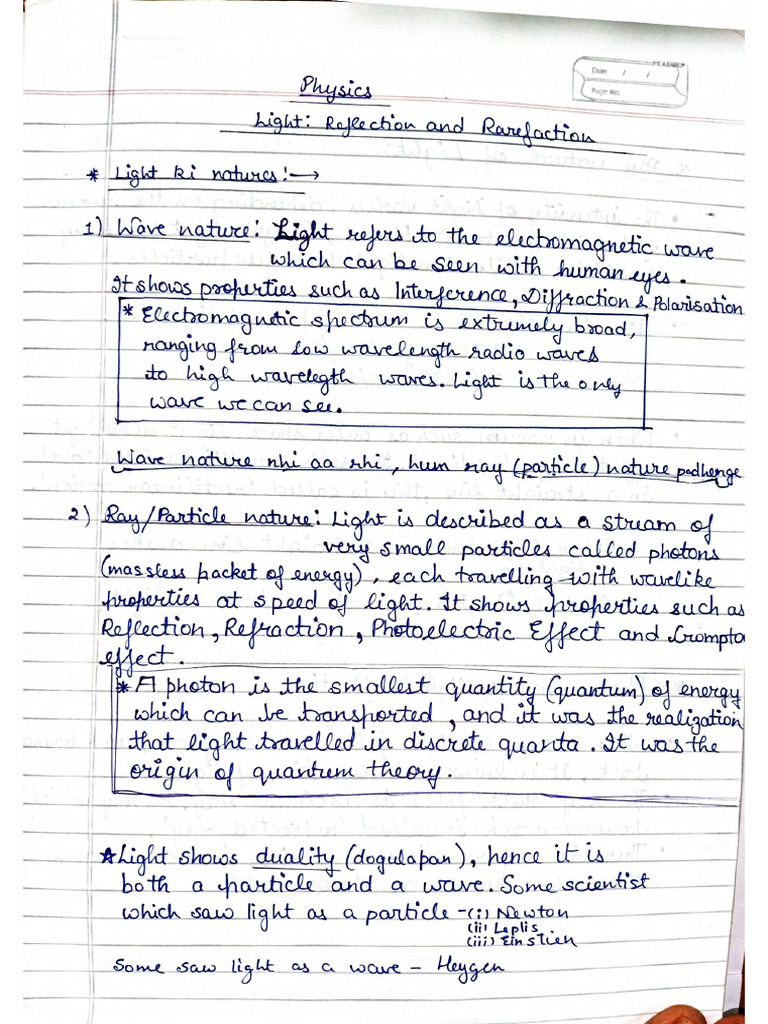 Date / /
Page No.
Physics
Light: Reflection and Rarefaction
* Light ki natures:→
1) Wave nature: Light refers to the electromagnetic wave
which can be seen with human eyes.
It shows properties such as Interference, Diffraction & Polarisation
* Electromagnetic spectrum is extremely broad,
ranging from low wavelength radio waves
to high wavelegth waves. Light is the only
wave we can see.
Wave nature nhi aa rhi, hum ray (particle) nature padhenge
2) Ray/Particle nature: Light is described as a stream of
very small particles called photons
(massless packet of energy), each travelling with wavelike
properties at speed of light. It shows properties such as
Reflection, Refraction, Photoelectric Effect and Crompto
effect.
* A photon is the smallest quantity (quantum) of energy
which can be transported, and it was the realization
that light travelled in discrete quanta. It was the
origin of quantum theory.
* Light shows duality (dogulapan), hence it is
both a particle and a wave. Some scientist
which saw light as a particle - (i) Newton
(ii) Leplis
(iii) Einstien
Some saw light as a wave - Heygen